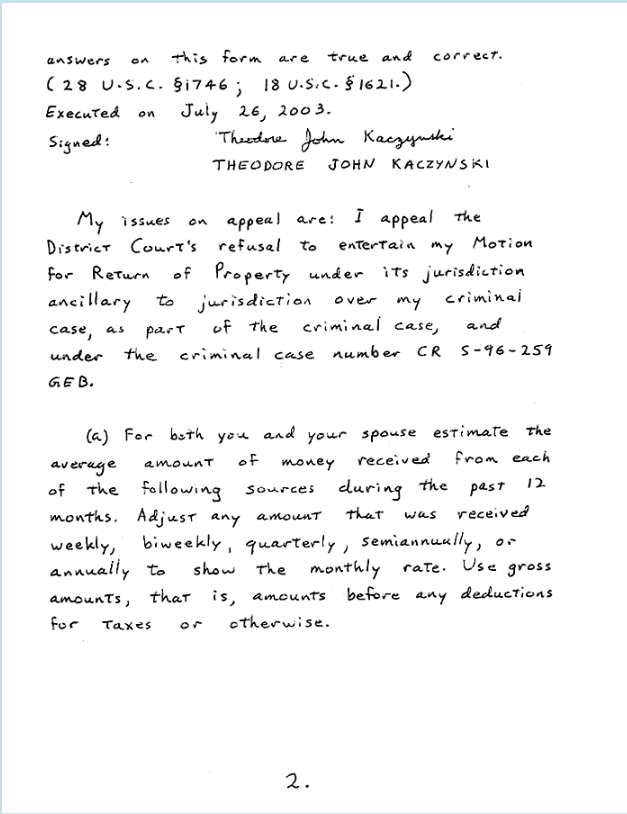 answers on this form are true and correct.
(28 U.S.C. §1746; 18 U.S.C. §1621.)
Executed on July 26, 2003.
Signed: Theodore John Kaczynski
THEODORE JOHN KACZYNSKI
My issues on appeal are: I appeal the
District Court's refusal to entertain my Motion
for Return of Property under its jurisdiction
ancillary to jurisdiction over my criminal
case, as part of the criminal case, and
under the criminal case number CR S-96-259
GEB.
(a) For both you and your spouse estimate the
average amount of money received from each
of the following sources during the past 12
months. Adjust any amount that was received
weekly, biweekly, quarterly, semiannually, or
annually to show the monthly rate. Use gross
amounts, that is, amounts before any deductions
for taxes or otherwise.
2.